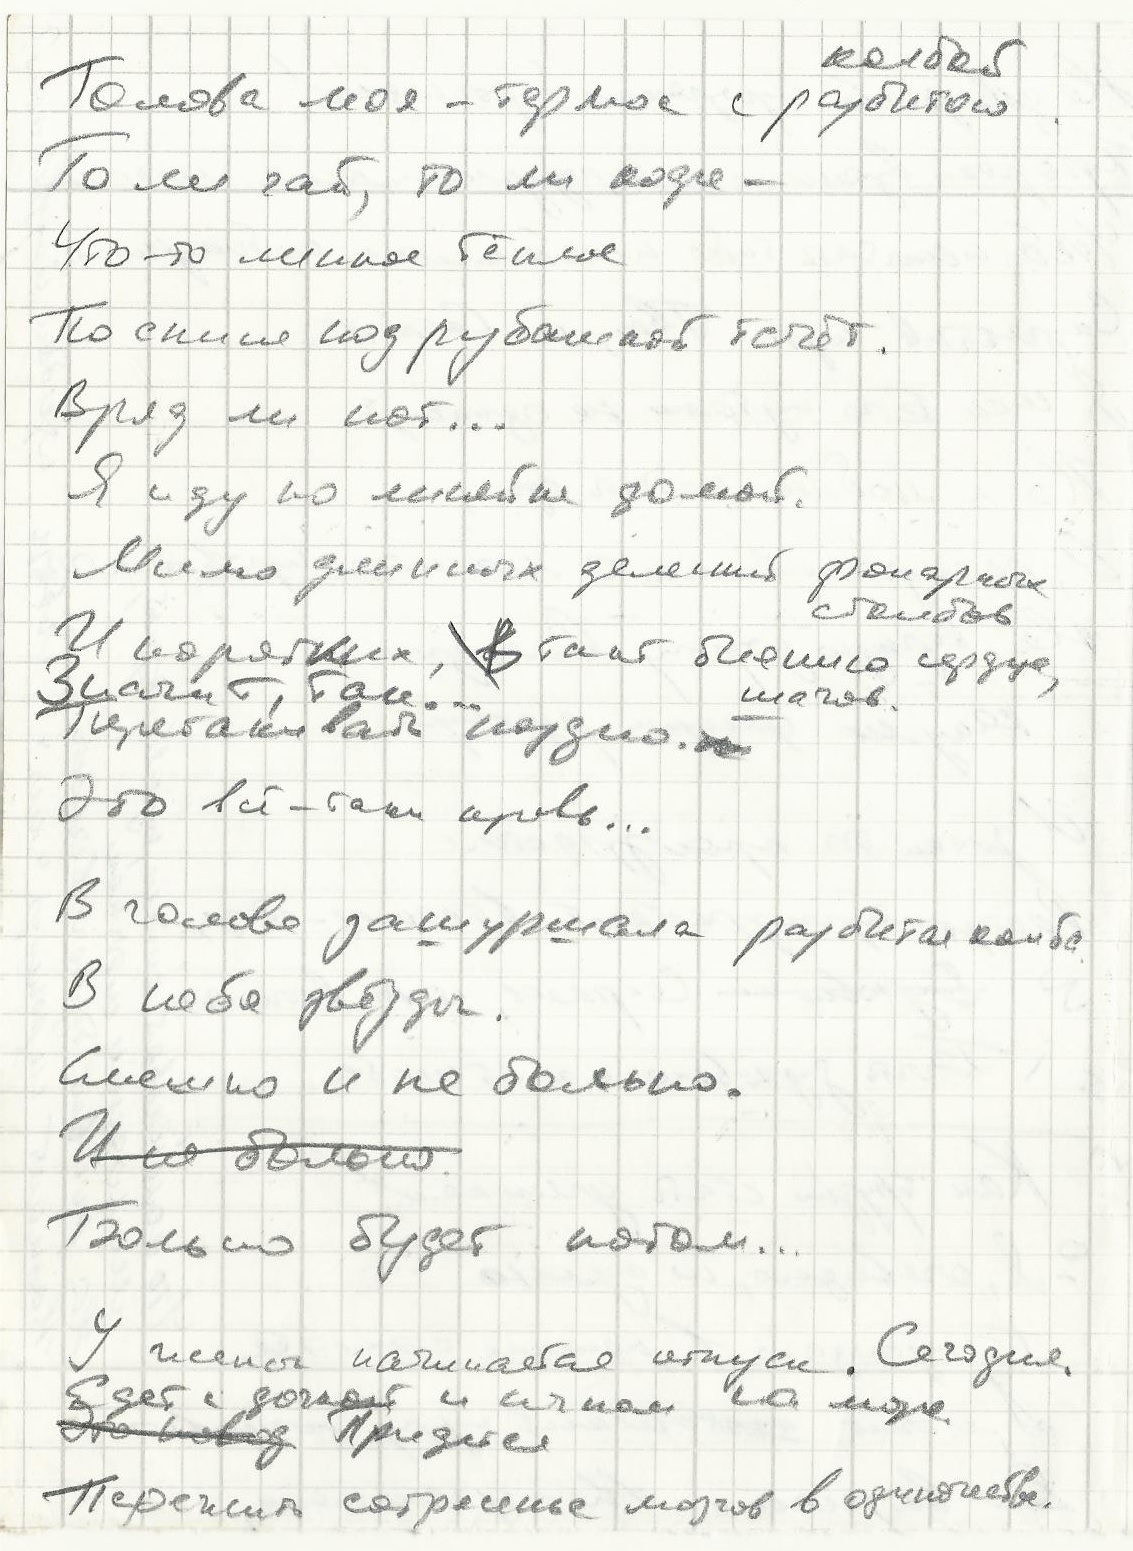 Голова моя – термос с разбитою
колбой
То ли чай, то ли кофе –
Что-то липкое тёплое
По спине под рубашкой течёт.
Вряд ли пот...
Я иду по линейке домой.
Мимо длинных делений фонарных
столбов
И коротких, в такт биению сердца,
шагов.
Значит, так...
Перетакивать поздно.
Это всё-таки кровь...
В голове зашуршала разбитая колба.
В небе звёзды.
Смешно и не больно.
И не больно.
Больно будет потом...
У жены начинается отпуск. Сегодня.
Едет с дочкой и сыном на море
Это повод Придётся
Пережить сотрясенье мозгов в одиночестве.